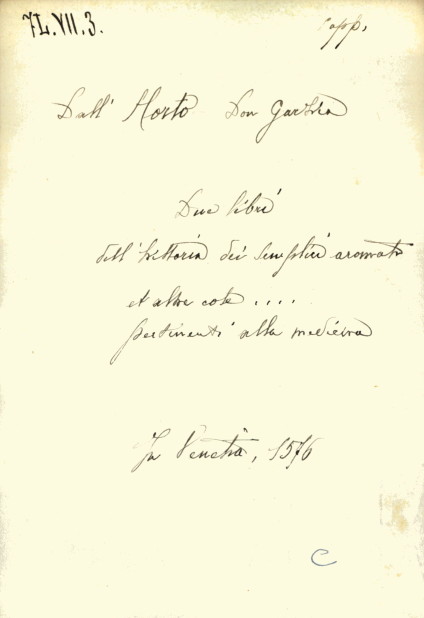 7L.VII.3.
Capp.
Dall' Horto Don Garzia
Due libri
dell' historia dei semplici aromati
et altre cose ....
pertinenti alla medicina
In Venetia, 1576
C